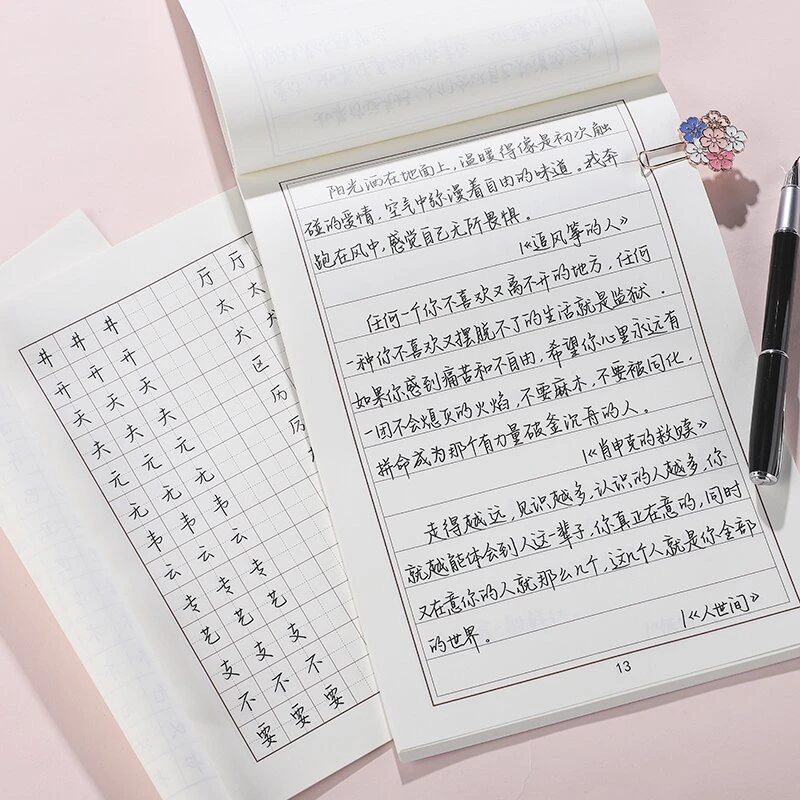 井井井厅厅
开开开太太
天天天犬犬
夫夫夫区
元元元历
无无无历
韦韦韦
云云云
专专专
艺艺艺
支支支
不不不
要要要
阳光洒在地面上，温暖得像是初次触
碰的爱情，空气中弥漫着自由的味道。我奔
跑在风中，感觉自己无所畏惧。
/《追风筝的人》
任何一个你不喜欢又离不开的地方，任何
一种你不喜欢又摆脱不了的生活就是监狱。
如果你感到痛苦和不自由，希望你心里永远有
一团不会熄灭的火焰，不要麻木，不要被同化，
拼命成为那个有力量破釜沉舟的人。
/《肖申克的救赎》
走得越远，见识越多，认识的人越多，你
就越能体会到人这一辈子，你真正在意的，同时
又在意你的人就那么几个，这几个人就是你全部
的世界。
/《人世间》
13